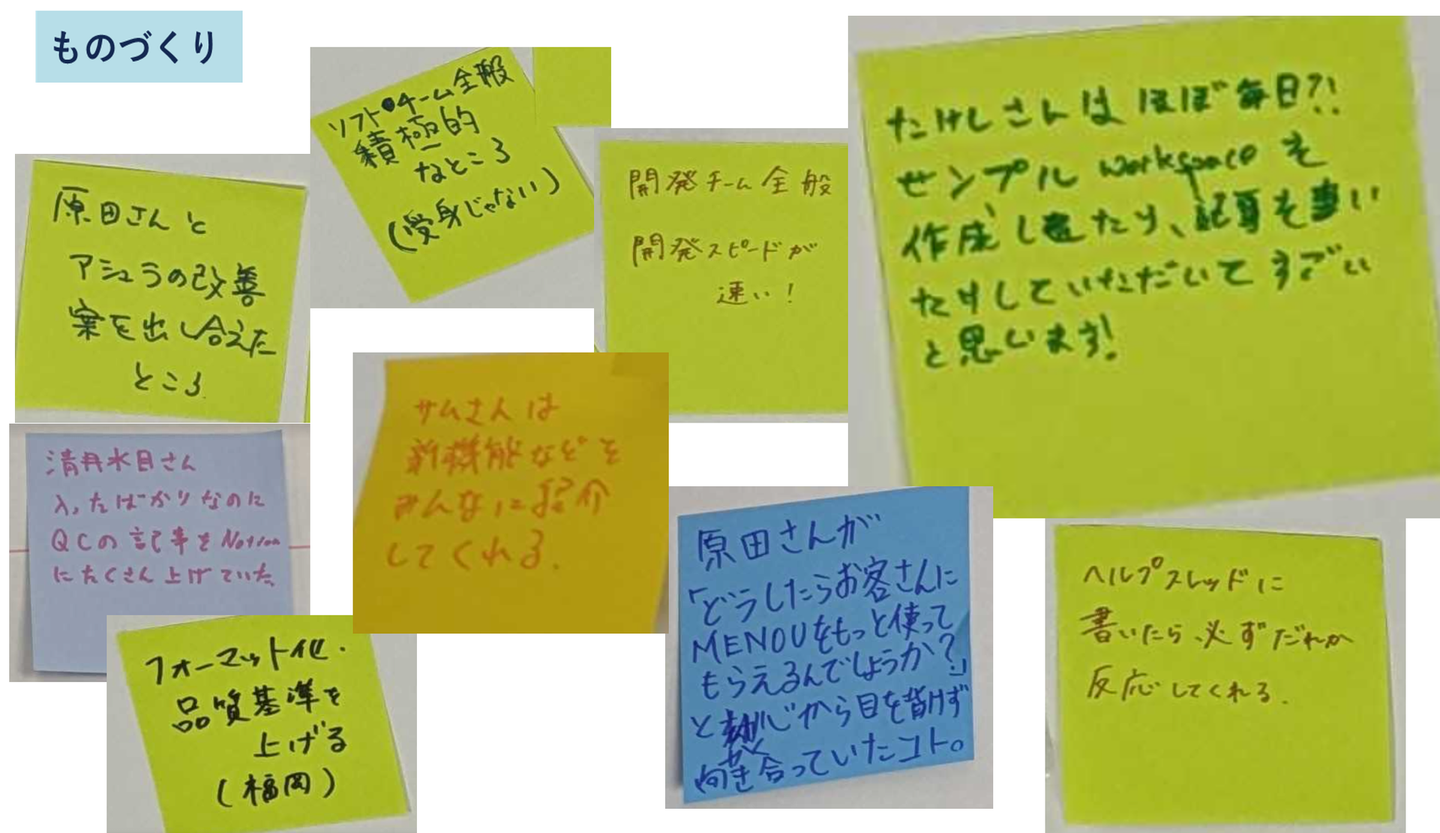 ものづくり
原田さんと
アシュラの改善
案を出し合えた
ところ
ソフトチーム全般
積極的
なところ
(受身じゃない)
開発チーム全般
開発スピードが
速い!
たけしさんは ほぼ毎日?!
サンプル workspace を
作成したり、記事を書い
たりしていただいてすごい
と思います!
清水目さん
入ったばかりなのに
QCの記事をNotion
にたくさん上げていた
サムさんは
新機能などを
みんなに紹介
してくれる.
原田さんが
「どうしたらお客さんに
MENOUをもっと使って
もらえるんでしょうか?」
と 目を背けず
向き合っていたコト。
ヘルプスレッドに
書いたら、必ずだれか
反応してくれる.
フォーマット化・
品質基準を
上げる
(福岡)